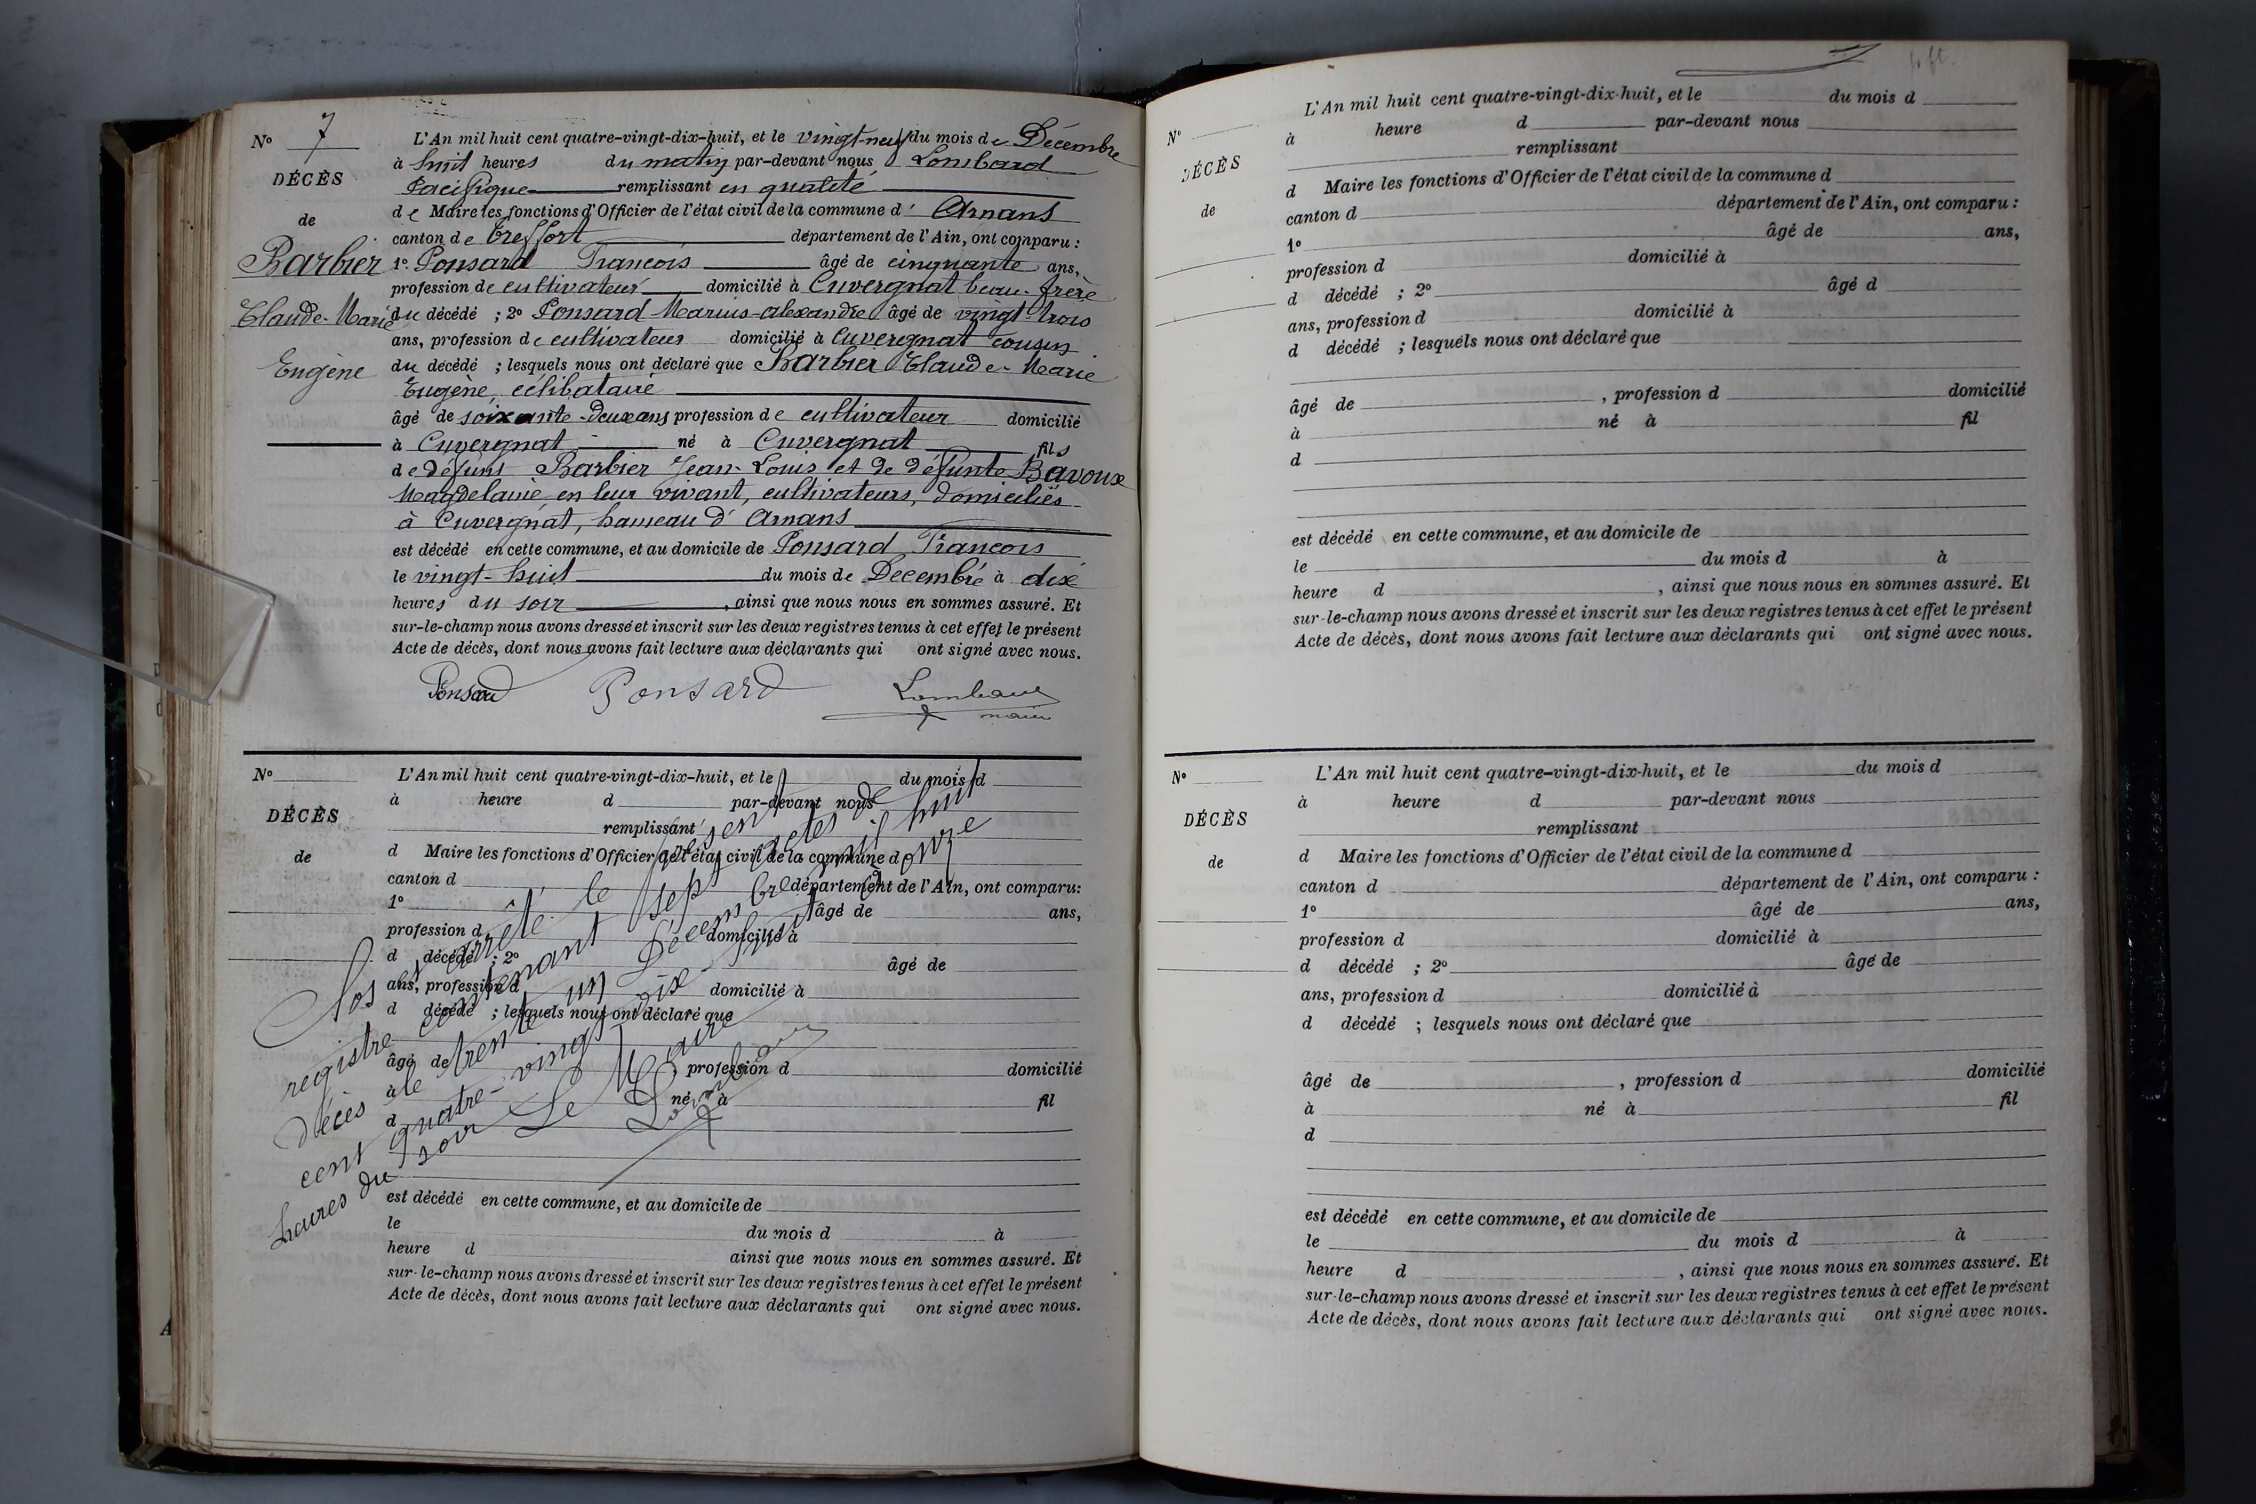 N° 7
DÉCÈS
de
Barbier
Claude-Marie
Eugène
L'An mil huit cent quatre-vingt-dix-huit, et le vingt-neuf du mois de Décembre
à huit heures du matin par-devant nous Lombard
Pacifique remplissant en qualité
de Maire les fonctions d'Officier de l'état civil de la commune d' Arnans
canton de Treffort département de l'Ain, ont comparu :
1° Ponsard François âgé de cinquante ans,
profession de cultivateur domicilié à Cuvergnat beau-frère
du décédé ; 2° Ponsard Marius-alexandre âgé de vingt-trois
ans, profession de cultivateur domicilié à Cuvergnat cousin
du décédé ; lesquels nous ont déclaré que Barbier Claude-Marie
Eugène, célibataire
âgé de soixante-deux ans profession de cultivateur domicilié
à Cuvergnat né à Cuvergnat fils
de défunt Barbier Jean-Louis et de défunte Bavoux
Magdelaine en leur vivant, cultivateurs, domiciliés
à Cuvergnat, hameau d'Arnans
est décédé en cette commune, et au domicile de Ponsard François
le vingt-huit du mois de Decembre à dix
heures du soir, ainsi que nous nous en sommes assuré. Et
sur-le-champ nous avons dressé et inscrit sur les deux registres tenus à cet effet le présent
Acte de décès, dont nous avons fait lecture aux déclarants qui ont signé avec nous.
Ponsard Ponsard Lombard
maire
N°
DÉCÈS
de
L'An mil huit cent quatre-vingt-dix-huit, et le du mois d
à heure d par-devant nous
remplissant
d Maire les fonctions d'Officier de l'état civil de la commune d
canton d département de l'Ain, ont comparu :
1° âgé de ans,
profession d domicilié à
d décédé ; 2° âgé de
ans, profession d domicilié à
d décédé ; lesquels nous ont déclaré que
âgé de , profession d domicilié
à né à fil
d
est décédé en cette commune, et au domicile de
le du mois d à
heure d ainsi que nous nous en sommes assuré. Et
sur-le-champ nous avons dressé et inscrit sur les deux registres tenus à cet effet le présent
Acte de décès, dont nous avons fait lecture aux déclarants qui ont signé avec nous.
Clos et arrêté le présent
registre contenant sept actes de
décès le trente un Décembre mil huit
cent quatre-vingt dix-huit à onze
heures du soir Le Maire
Lombard
N°
DÉCÈS
de
L'An mil huit cent quatre-vingt-dix-huit, et le du mois d
à heure d par-devant nous
remplissant
d Maire les fonctions d'Officier de l'état civil de la commune d
canton d département de l'Ain, ont comparu :
1° âgé de ans,
profession d domicilié à
d décédé ; 2° âgé d
ans, profession d domicilié à
d décédé ; lesquels nous ont déclaré que
âgé de , profession d domicilié
à né à fil
d
est décédé en cette commune, et au domicile de
le du mois d à
heure d , ainsi que nous nous en sommes assuré. Et
sur-le-champ nous avons dressé et inscrit sur les deux registres tenus à cet effet le présent
Acte de décès, dont nous avons fait lecture aux déclarants qui ont signé avec nous.
N°
DÉCÈS
de
L'An mil huit cent quatre-vingt-dix-huit, et le du mois d
à heure d par-devant nous
remplissant
d Maire les fonctions d'Officier de l'état civil de la commune d
canton d département de l'Ain, ont comparu :
1° âgé de ans,
profession d domicilié à
d décédé ; 2° âgé de
ans, profession d domicilié à
d décédé ; lesquels nous ont déclaré que
âgé de , profession d domicilié
à né à fil
d
est décédé en cette commune, et au domicile de
le du mois d à
heure d , ainsi que nous nous en sommes assuré. Et
sur-le-champ nous avons dressé et inscrit sur les deux registres tenus à cet effet le présent
Acte de décès, dont nous avons fait lecture aux déclarants qui ont signé avec nous.